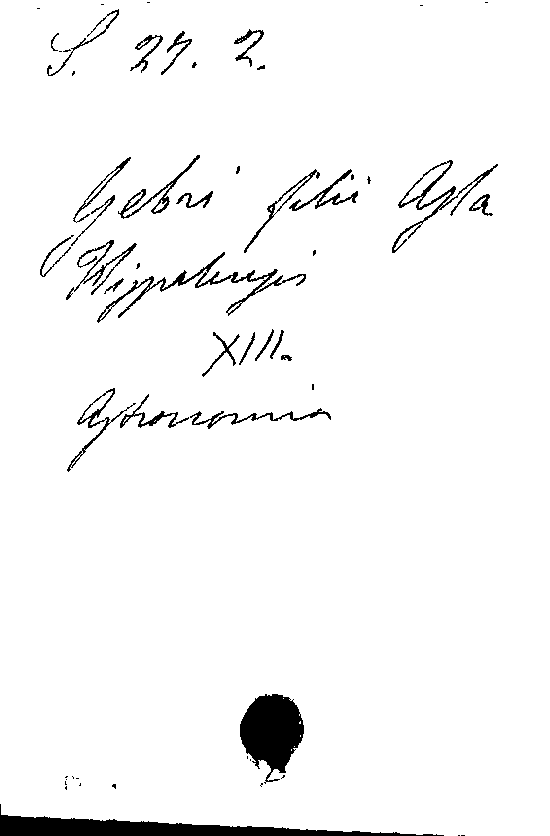 S. 27. 2.
Gebri filii Afla
Hispalensis
XIII.
Astronomia